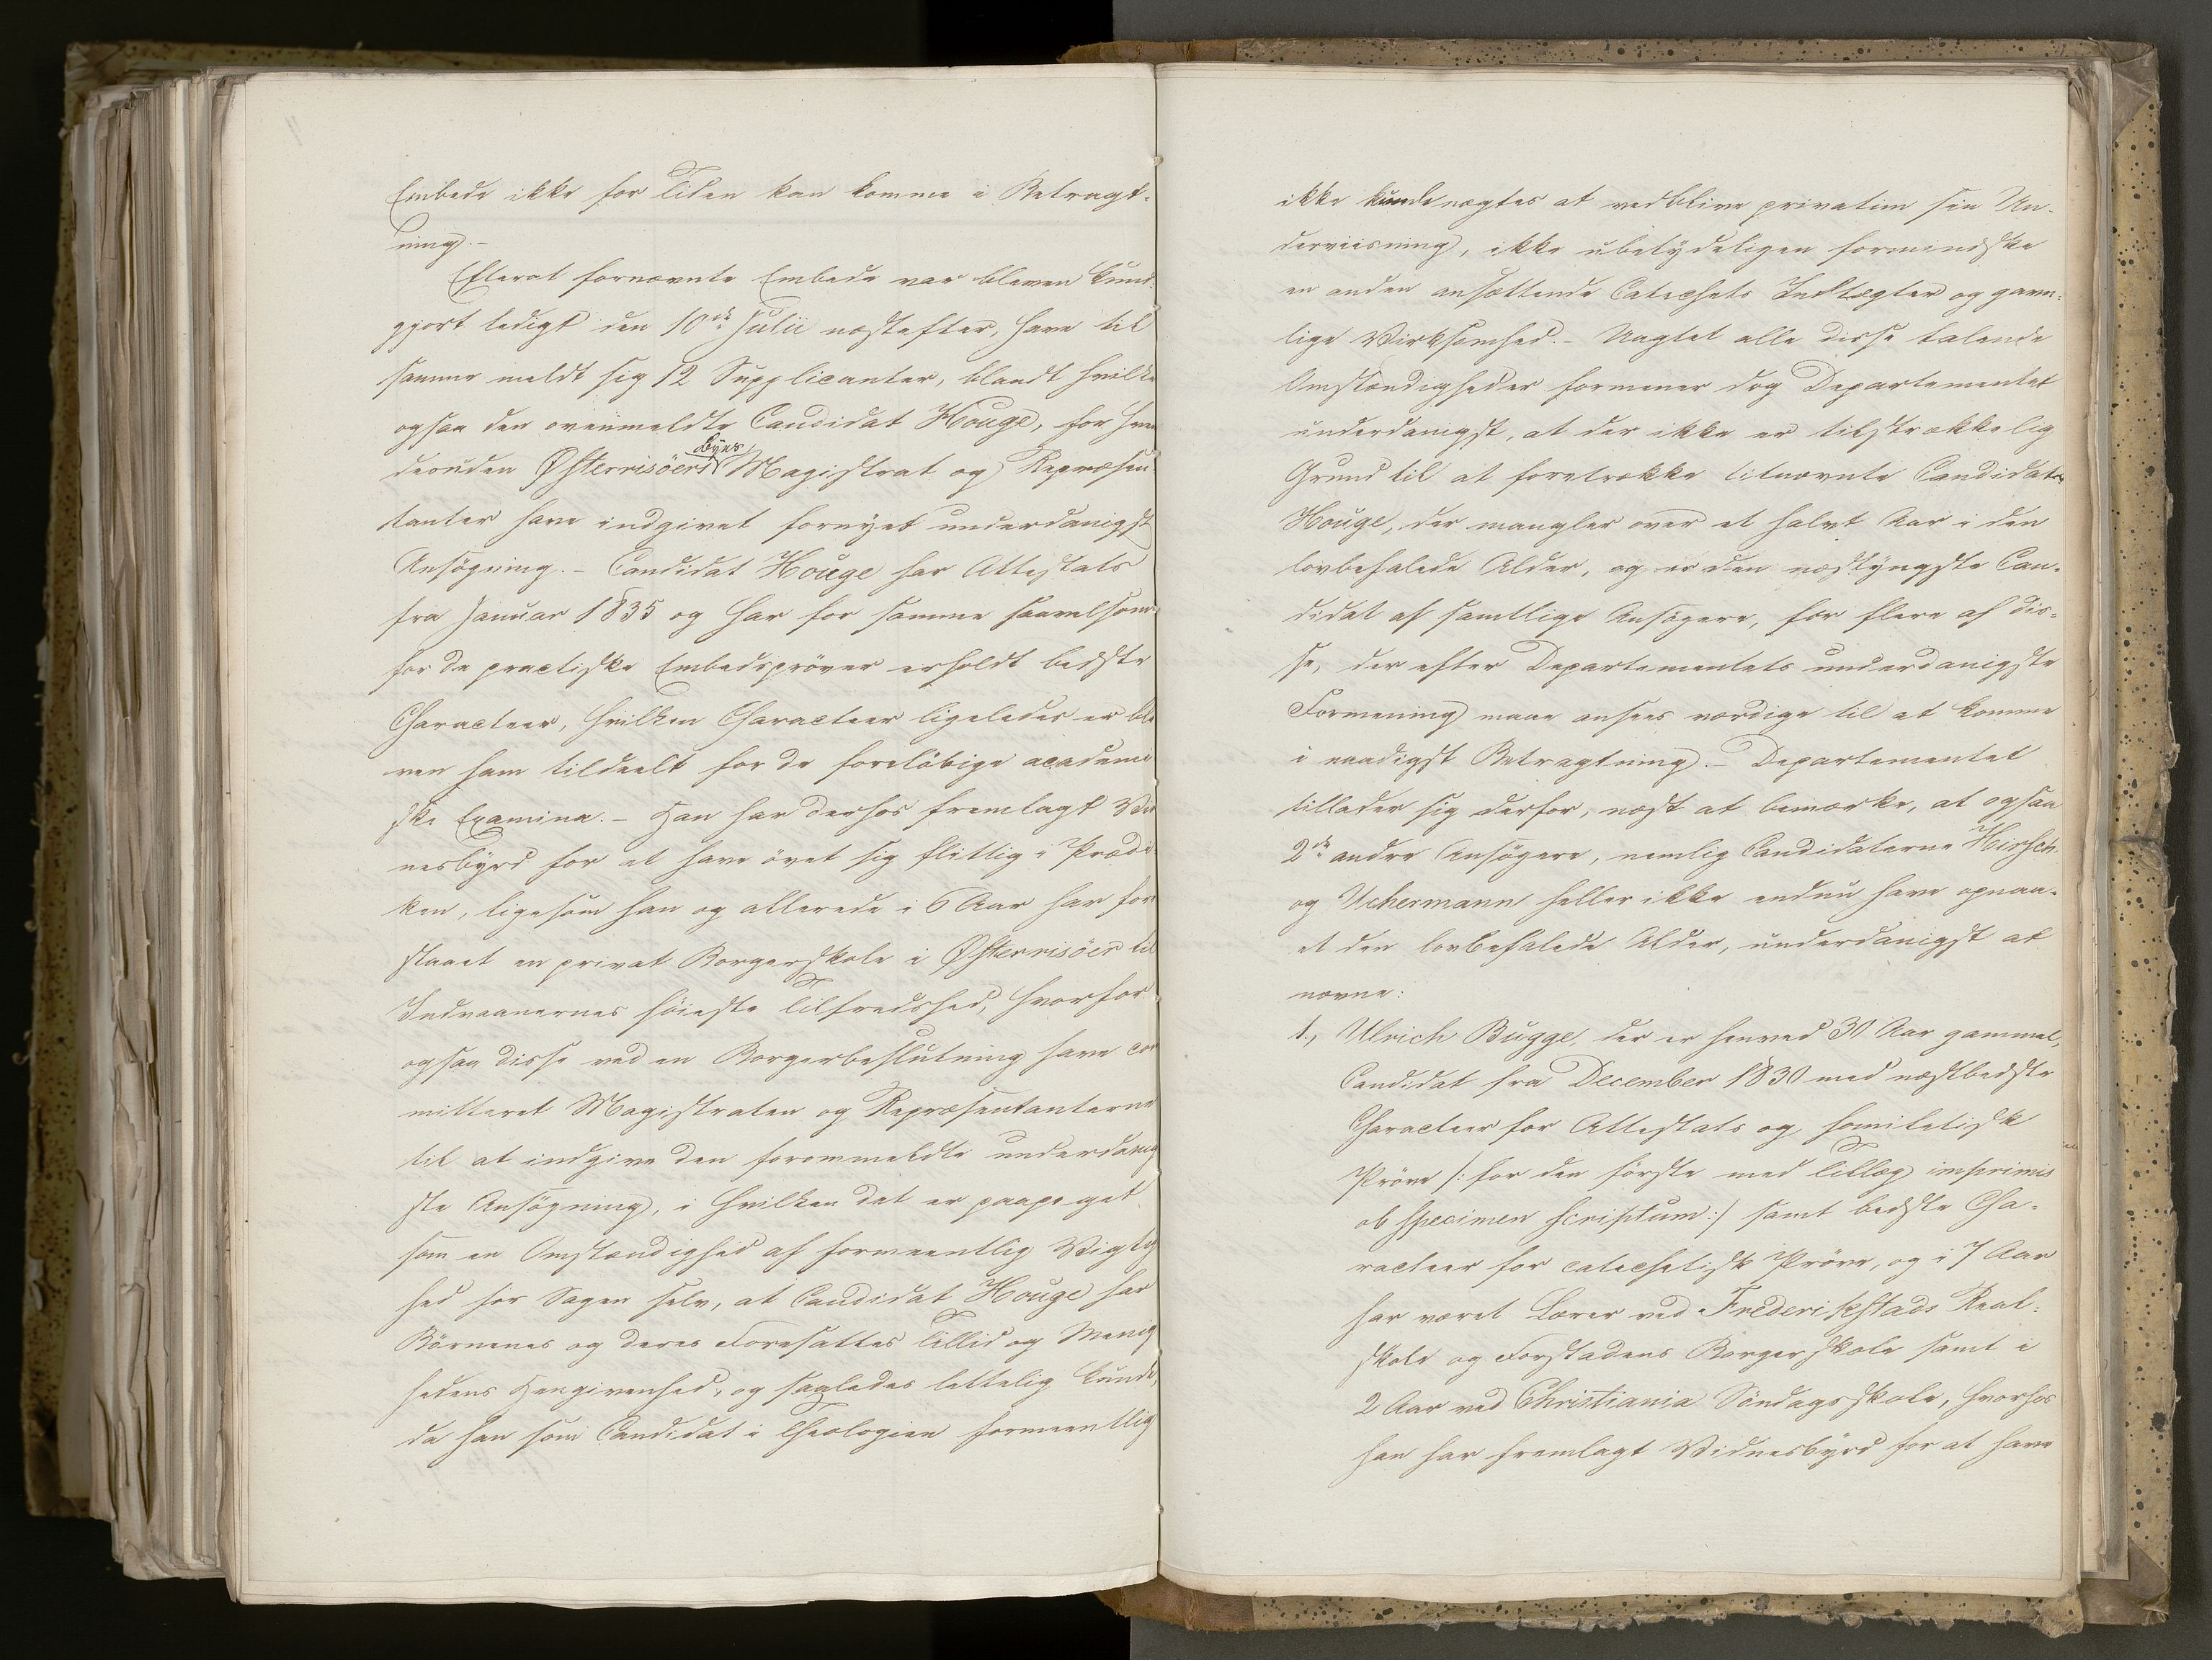 Embede ikke for Tiden kan komme i Betragt-
ning.-
Efterat fornævnte Embede var bleven kund-
gjort ledigt den 10de Julii næstefter, have til
samme meldt sig 12 Supplicanter, blandt hvilke
ogsaa den ovenmeldte Candidat Houge, for hvem
desuden Østerrisöers Byes Magistrat og Repræsen-
tanter have indgivet fornyet underdanigst
Ansøgning.- Candidat Houge har Attestats
fra Januar 1835 og har for samme saavelsom
for de practiske Embedsprøver erholdt bedste
Characteer, hvilken Characteer ligeledes er ble
ven ham tildeelt for de foreløbige academi
ske Examina.- Han har derhos fremlagt Vid
nesbyrd for at have øvet sig flittig i Prædi
ken, ligesom han og allerede i 6 Aar har fore
staaet en privat Borgerskole i Østerrisöer til
Indvaanernes høieste Tilfredshed, hvorfor
ogsaa disse ved en Borgerbeslutning have com
mitteret Magistraten og Repræsentanterne
til at indgive den forommeldte underdanig
ste Ansøgning, i hvilken det er paapeget
som en Omstændighed af formeentlig Vigtig
hed for Sagen selv, at Candidat Houge har
Børnenes og deres Foresattes Tillid og Menig
hedens Hengivenhed, og saaledes lettelig kunde,
da han som Candidat i Theologien formeentlig
ikke kunde nægtes at vedblive privatim sin Un-
derviisning, ikke ubetydeligen formindske
en anden ansættende Catechets Indtægter og gavn-
lige Virksomhed.- Uagtet alle disse talende
Omstændigheder formener dog Departementet
underdanigst, at der ikke er tilstrækkelig
Grund til at foretrække bemeldte Candidat
Houge, der mangler over et halvt Aar i den
lovbefalede Alder, og er den næstyngste Can-
didat af samtlige Ansøgere, for flere af dis-
se, der efter Departementets underdanigste
Formening maae ansees værdige til at komme
i naadigst Betragtning.- Departementet
tillader sig derfor, næst at bemærke, at ogsaa
2de andre Ansøgere, nemlig Candidaterne Hirsch
og Uchermann heller ikke endnu have opnaa-
et den lovbefalede Alder, underdanigst at
nævne:
1., Ulrich Bugge, der er henved 30 Aar gammel,
Candidat fra December 1830 med næstbedste
Characteer for Attestats og homiletisk
Prøve /: for den første med Tillæg imprimis
ob specimen scriptum :/ samt bedste Cha-
racteer for catechetisk Prøve, og i 7 Aar
har været Lærer ved Frederikstads Real-
skole og Forstadens Borgerskole samt i
2 Aar ved Christiania Søndagsskole, hvorhos
han har fremlagt Vidnesbyrd for at have